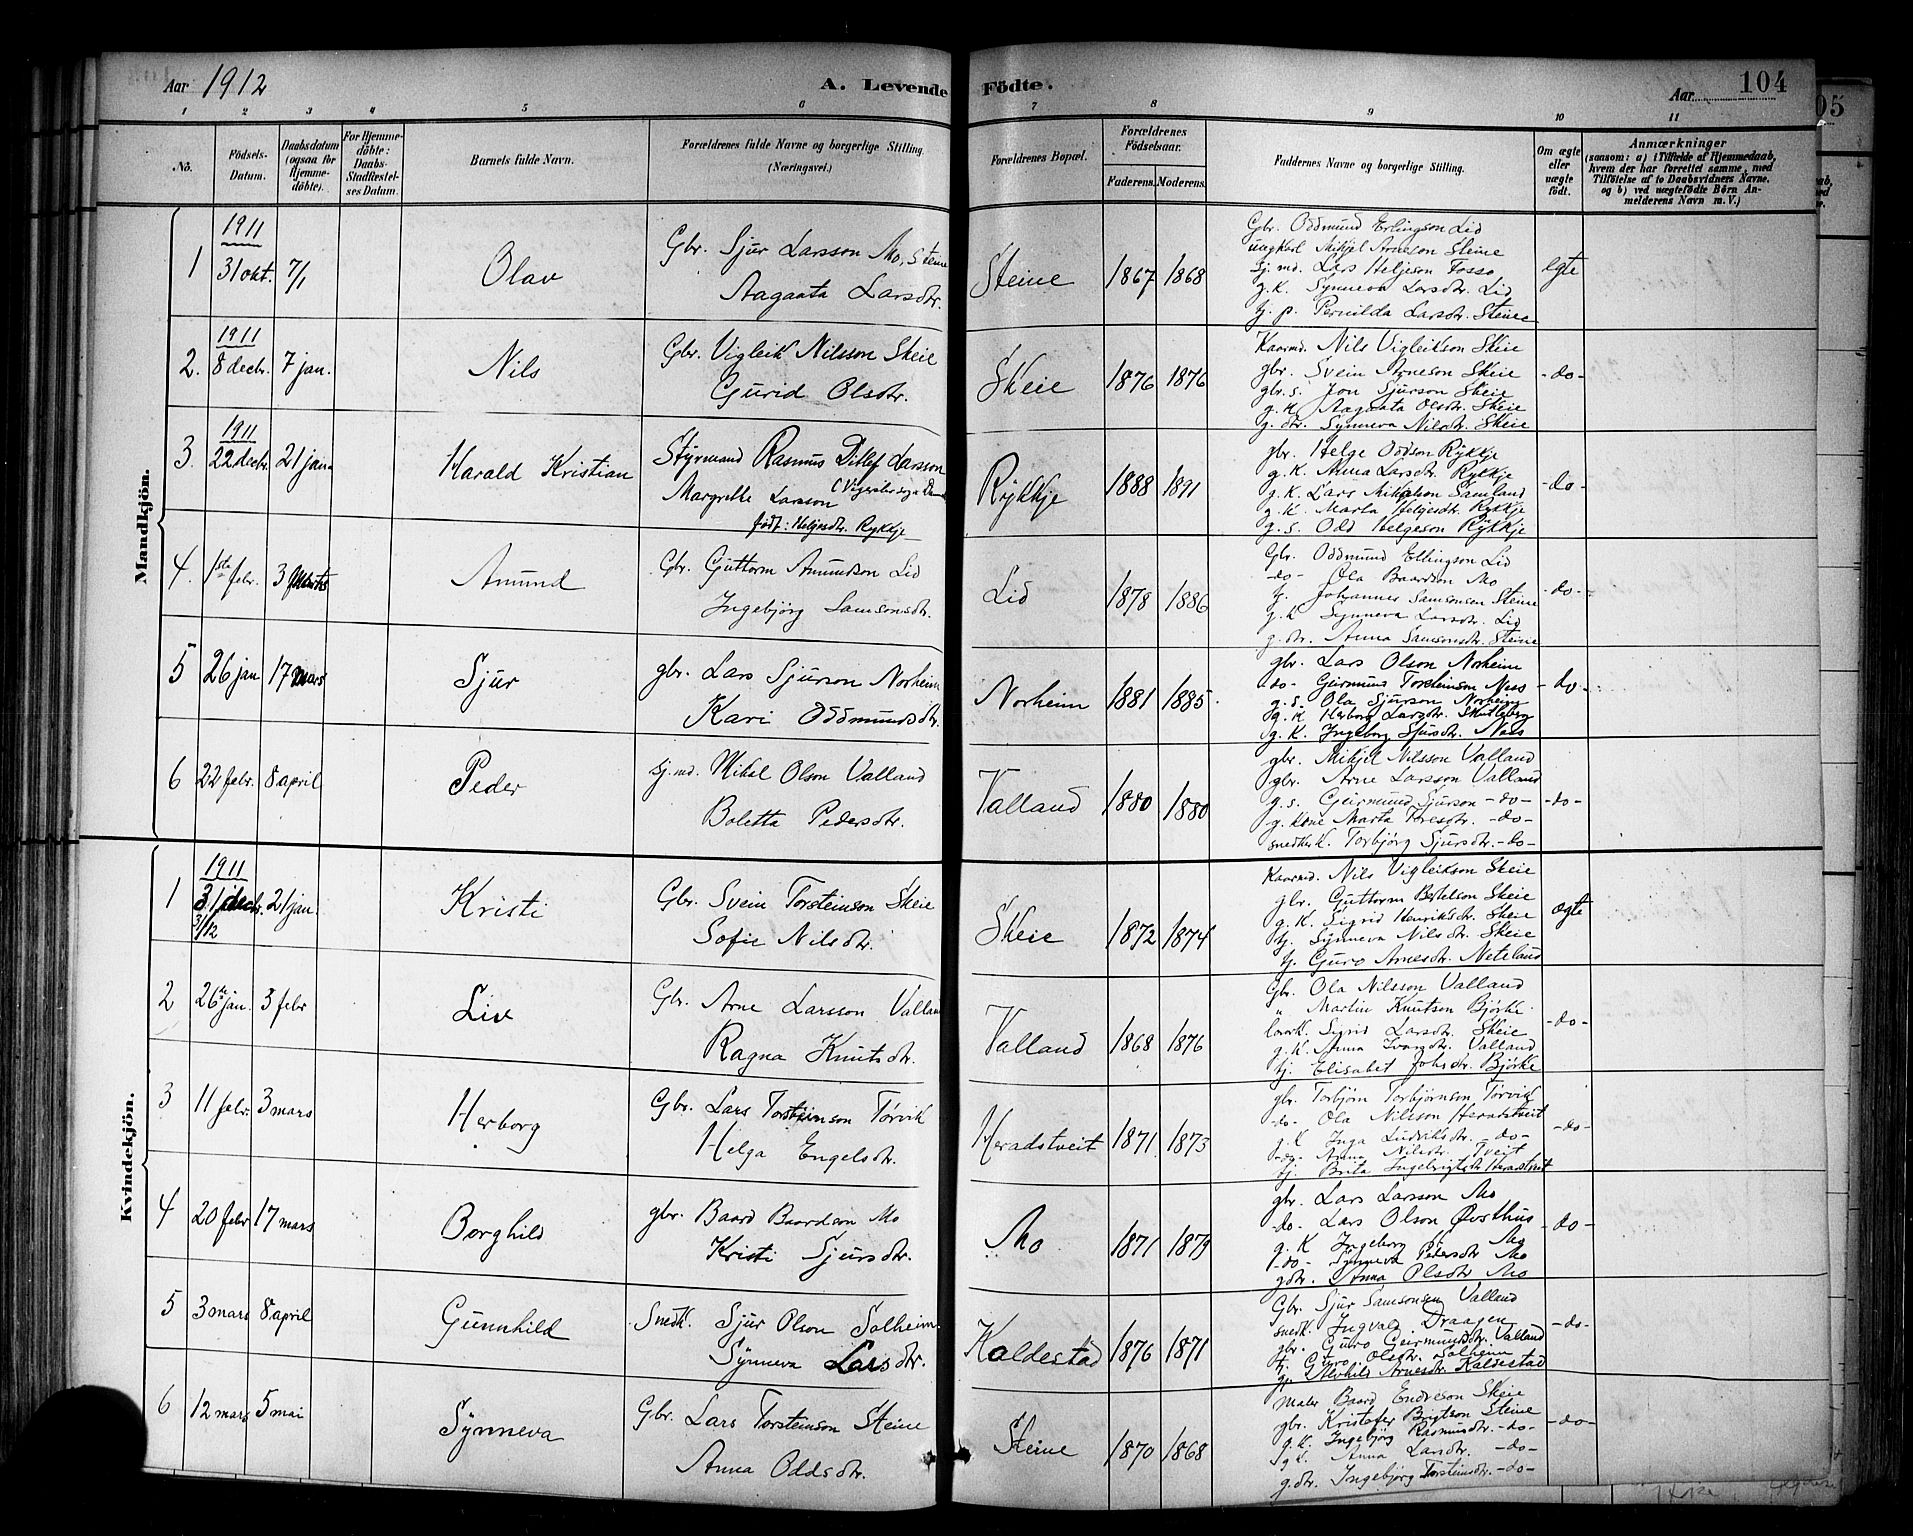 Aar 1912
A. Levende Födte.
Aar 104
05
1 2 3 4 5 6 7 8 9 10 11
No.
Födsels-Datum.
Daabsdatum (ogsaa for Hjemmedöbte).
For Hjemmedöbte: Daabs-Stadfestelses Datum.
Barnets fulde Navn.
Forældrenes fulde Navne og borgerlige Stilling. (Næringsvei.)
Forældrenes Bopæl.
Forældrenes Födselsaar.
Faderens. Moderens.
Faddernes Navne og borgerlige Stilling.
Om ægte eller uægte födt.
Anmærkninger
(saasom: a) i Tilfælde af Hjemmedaab, hvem der har forrettet samme, med Tilföielse af to Daabsvidners Navne, og b) ved uægtefödte Börn Anmelderens Navn m. V.)
Mandkjön.
1 1911 31 okt. 7/1
Olav
Gbr. Sjur Larsson Mo, Steine
Aagaata Larsdtr.
Steine 1867 1868
Gbr. Oddmund Erlingson Lid
ungkarl Mikjel Arneson Steine
sj. md. Lars Heljeson Fosso
g.k. Synneva Larsdtr. Lid
tj. p. Pernilda Larsdtr. Steine
egte
2. 1911 8 decbr. 7 jan.
Nils
Gbr. Vigleik Nilsson Skeie
Gurid Olsdtr.
Skeie 1876 1876
Kaarmd. Nils Vigleikson Skeie
gbr. Svein Arneson Skeie
gbr. s. Jon Sjurson Skeie
g. K. Aagaata Olsdtr. Skeie
g. dtr. Synneva Nilsdtr. Skeie
-do-
3. 1911 22 decbr. 21 jan.
Harald Kristian
Styrmand Rasmus Ditlef Larsson
Margrethe Larsson
født: Heljesdtr. Rykkje
Rykkje 1888 1891
gbr. Helge Oddson Rykkje
g. K. Anna Larsdtr. Rykkje
g. K. Lars Mikalson Samland
g. K. Marta Helgesdtr. Rykkje
g. s. Odd Helgeson Rykkje
-do-
4. 1ste febr. 3 marts
Amund
Gbr. Guttorm Amundson Lid
Ingebjørg Samsonsdtr.
Lid 1878 1886
Gbr. Oddmund Ellingson Lid
-do- Ola Baardson Mo
tj. Johannes Samsonsen Steine
g. K Synneva Larsdtr. Lid
g. dtr. Anna Samsonsdtr. Steine
-do-
5 26 jan 17 mars
Sjur
gbr. Lars Sjurson Norheim
Kari Oddmundsdtr.
Norheim 1881 1885.
gbr. Lars Olson Norheim
-do- Geirmund Torsteinson Ness
g. s. Ola Sjurson Norheim
g. K Herborg Larsdtr. Skutleberg
g. K. Ingeborg Sjursdtr. Ness
-do-
6 22 febr. 8 april
Peder
sj. md. Mikal Olson Valland
Boletta Pedersdtr.
Valland 1880 1880
gbr. Mikjel Nilsson Valland
gbr. Arne Larsson Valland
g. s. Geirmund Sjurson -do-
g. kone Marta Toresdtr. -do-
snedker K. Torbjørg Sjursdtr. -do-
-do-
Kvindekjön.
1 1911 31 decbr. 21 jan.
3/12
Kristi
Gbr. Svein Torsteinson Skeie
Sofie Nilsdtr.
Skeie 1872 1874
Kaarmd. Nils Vigleikson Skeie
gbr. Guttorm Bottolson Skeie
g. K. Sigrid Henriksdtr. Skeie
tj. Synneva Nilsdtr. Skeie
tj. Guro Arnesdtr. Neteland
ægte
2 26de jan. 3 febr
Liv
Gbr. Arne Larsson Valland
Ragna Knutsdtr.
Valland 1868 1876
Gbr. Ola Nilsson Valland
" Martin Knutson Bjørke
Sigrid Larsdtr. Skeie
g. K. Anna Ivarsdtr. Valland
tj. Elisabet Johsdtr. Bjørke
-do-
3 11 febr. 3 mars
Herborg
Gbr. Lars Torsteinson Torvik
Helga Engelsdtr.
Heradstveit 1871 1873
gbr. Torbjørn Torbjørnson Torvik
-do- Ola Nilsson Heradstveit
g. K Inga Ludviksdtr. -do-
Anna Nilsdtr. Tveit
tj. Brita Ingebrigtsdtr. Heradstveit
-do-
4 20 febr 17 mars
Borghild
gbr. Baard Baardson Mo
Kristi Sjursdtr.
Mo 1871 1879
gbr. Lars Larsson Mo
-do- Lars Olson Øvsthus
g. K Ingeborg Mo
-do- Synneva Pedersdtr Mo
gdtr. Anna Olsdtr Mo
-do-
5 3 mars 8 april
Gunnhild
Snedk. Sjur Olson Solheim.
Synneva Larsdtr.
Kaldestad 1876 1871
Gbr. Sjur Samsonsen Valland
snedk. Ingvald Draagen
gbr. Guro Geirmundsdtr. Valland
tj. Guro Olsdtr. Solheim
gp. Alvhild Arnesdtr. Kaldestad
-do-
6 12 mars 5 mai
Synneva
Gbr. Lars Torsteinson Steine
Anna Oddsdtr.
Steine 1870 1868
Maler Baard Endreson Skeie
gbr. Kristofer Brigtson Steine
g. K. Ingebjørg Rasmusdtr. -do-
g K. Anna Larsdtr. -do-
g. dtr. Ingebjørg Torsteinsdtr. -do-
-do-